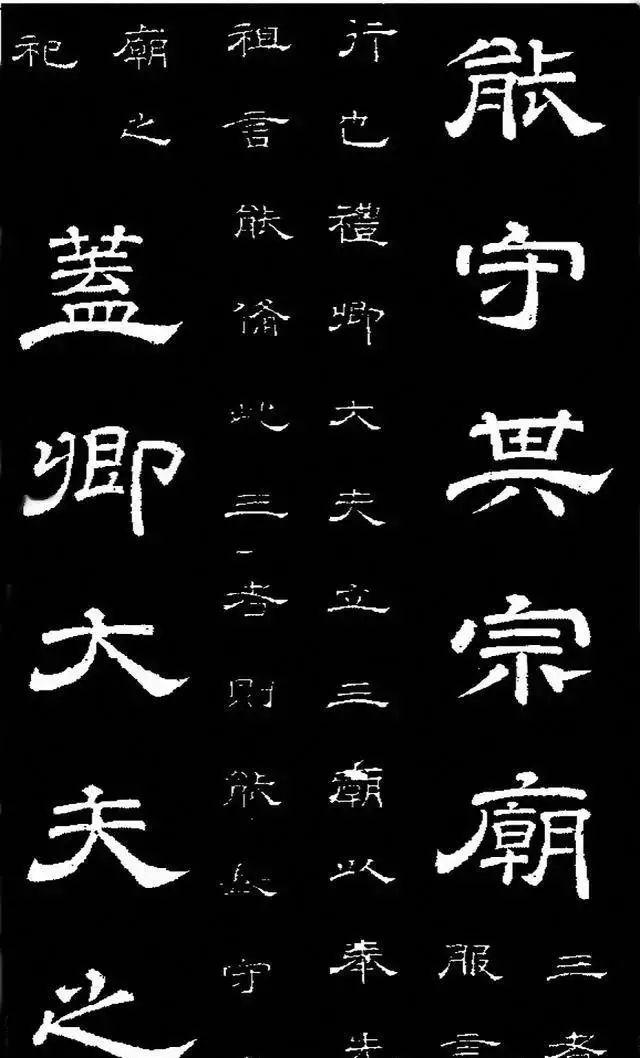 能守其宗廟
三者
服言
行也禮卿大夫立三廟以奉先
祖言能備此三者則能長守
廟之
祀
蓋卿大夫之